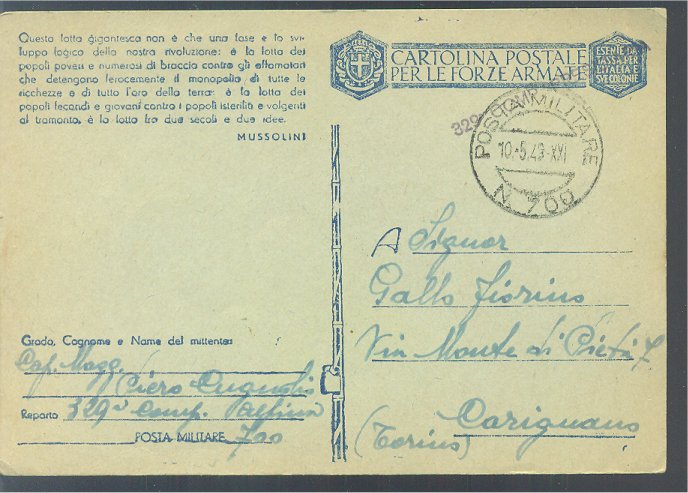 Questa lotta gigantesca non è che una fase e lo svi-
luppo logico della nostra rivoluzione: è la lotta dei
popoli poveri e numerosi di braccia contro gli affamatori
che detengono ferocemente il monopolio di tutte le
ricchezze e di tutto l'oro della terra: è la lotta dei
popoli fecondi e giovani contro i popoli isteriliti e volgenti
al tramonto, è la lotta fra due secoli e due idee.
MUSSOLINI
CARTOLINA POSTALE
PER LE FORZE ARMATE
ESENTE DA
TASSA PER
L'ITALIA E
SVE COLONIE
329
POSTA MILITARE
10.-5.43-XXI
N. 700
A Signor
Gallo Fiorino
Via Monte di Pietà 7
Carignano
(Torino)
Grado, Cognome e Nome del mittente:
Cap. Magg.
Piero
Reparto 329ª Comp. Alpina
POSTA MILITARE 700